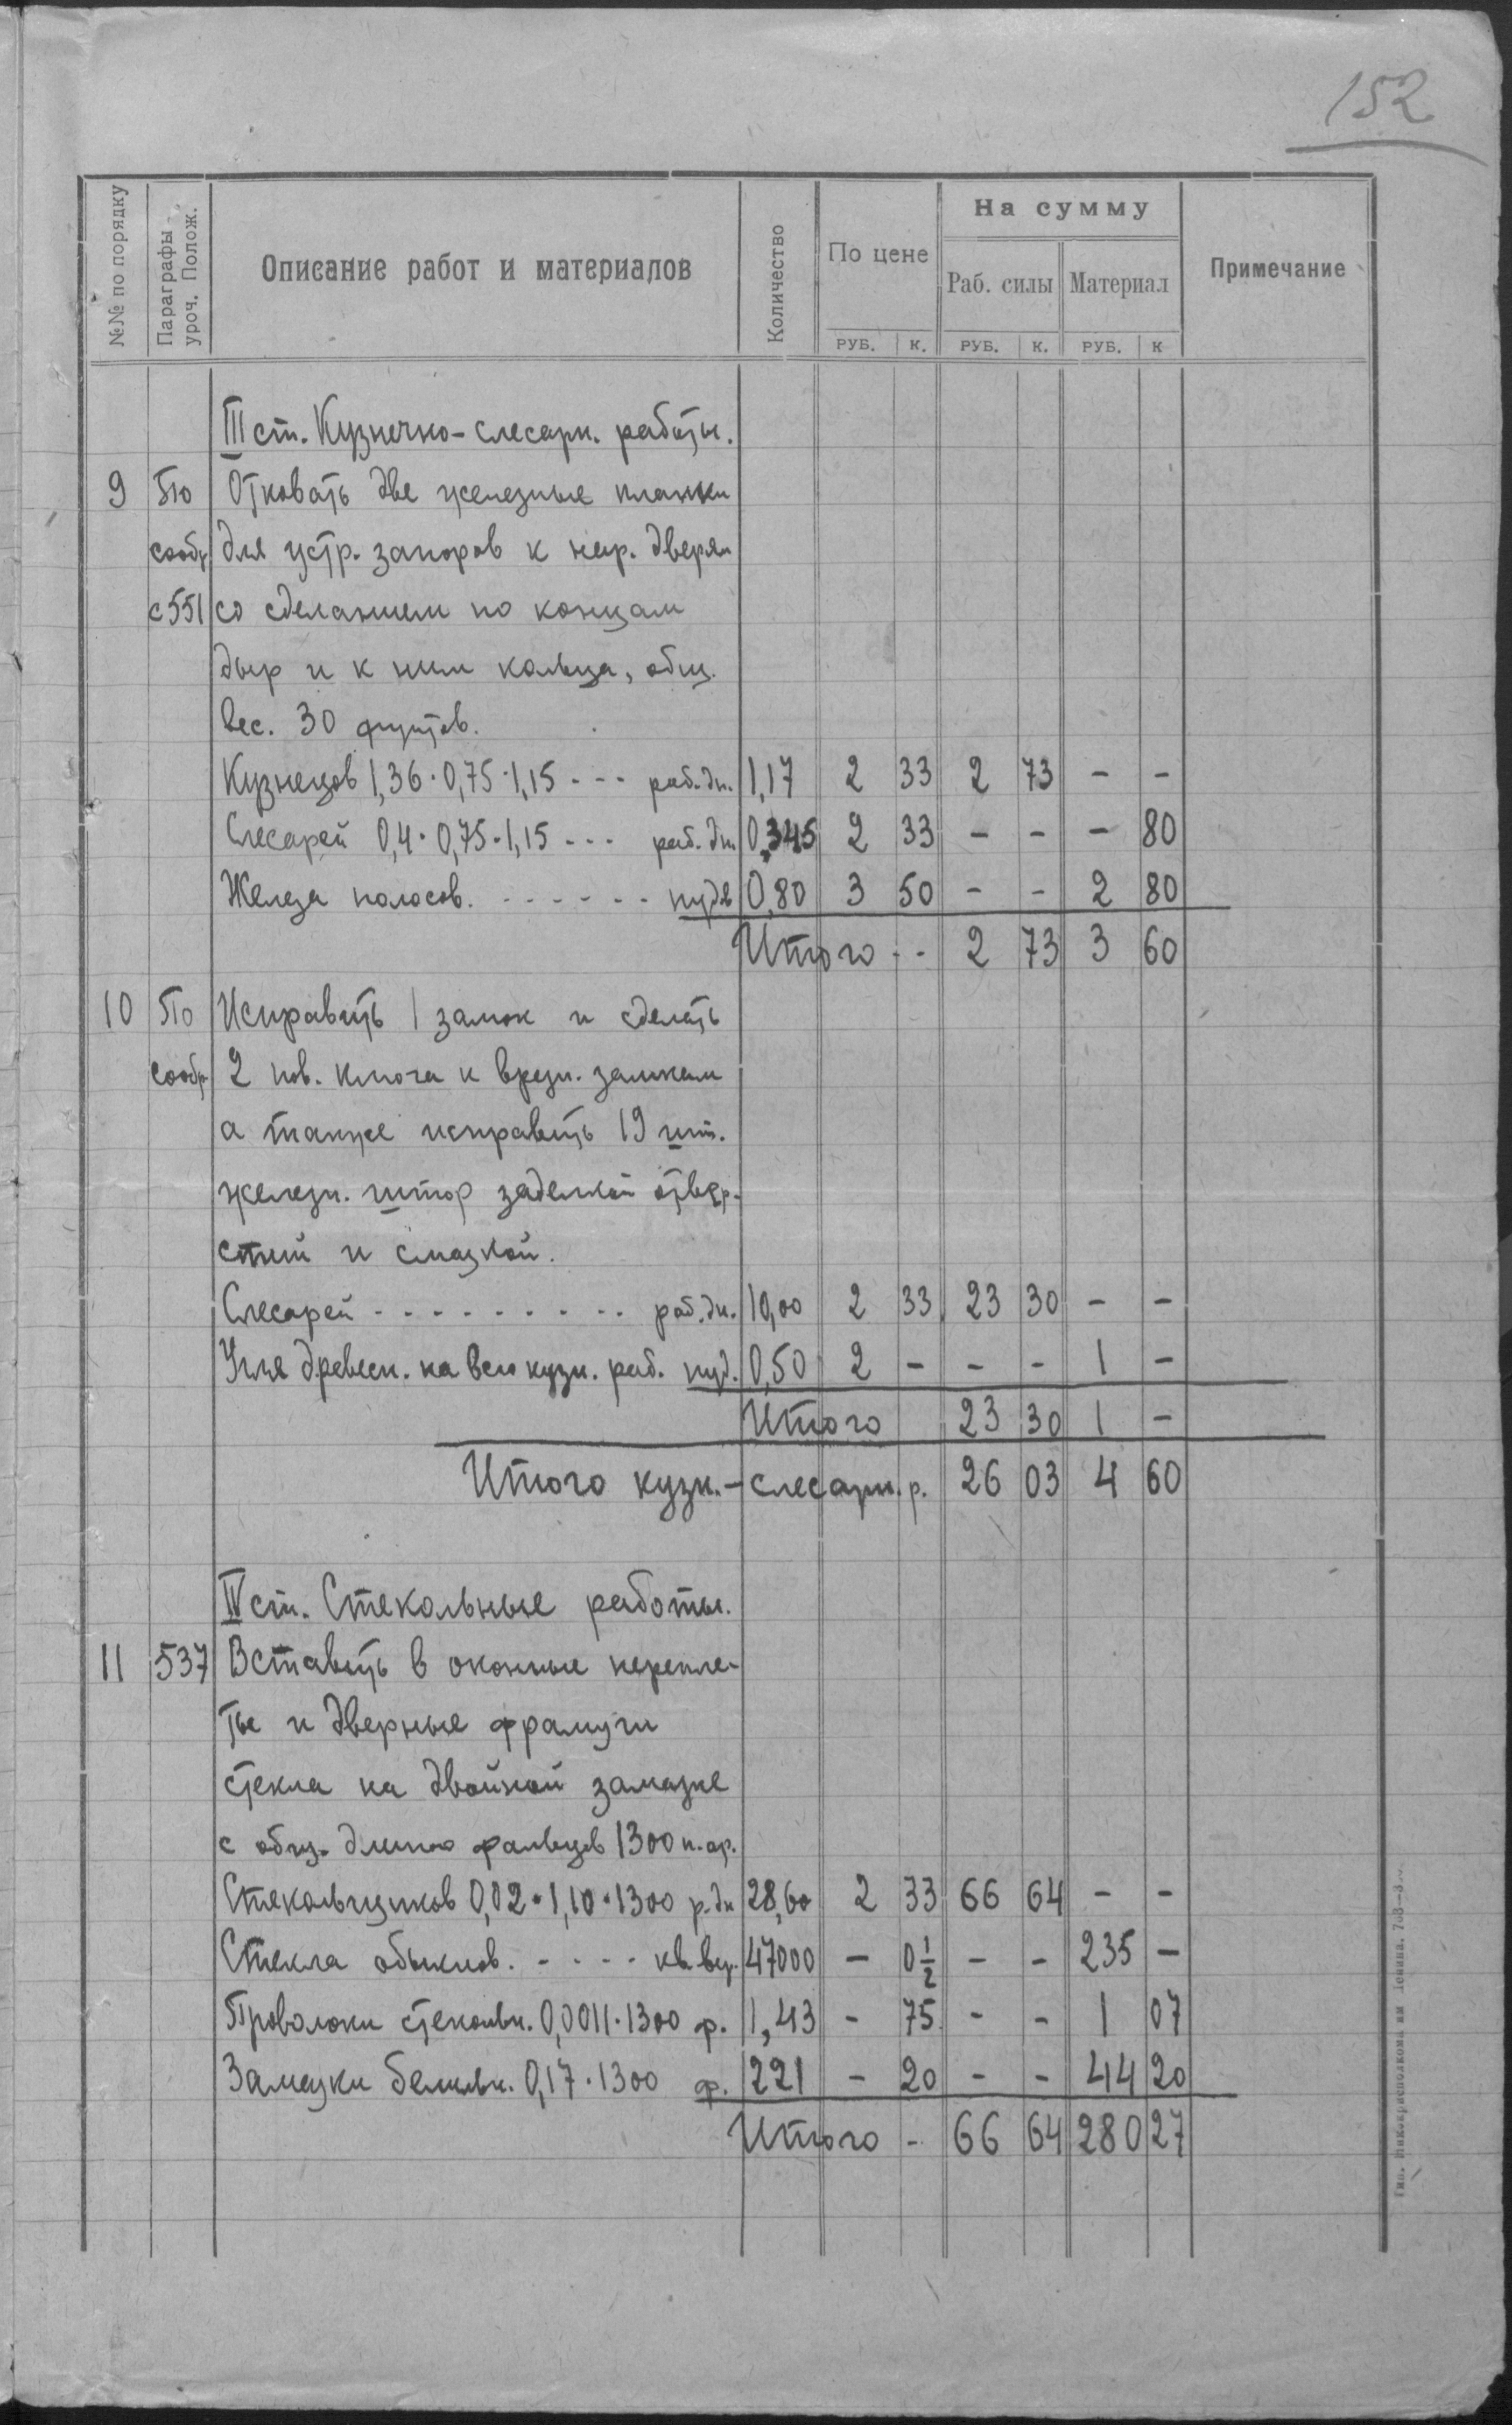 152
№№ по порядку
Параграфы
уроч. Полож.
Описание работ и материалов
Количество
По цене
На сумму
Раб. силы
Материал
Примечание
РУБ. К. РУБ. К. РУБ. К
III ст. Кузнечно-слесарн. работы.
9 По Отковать две железные планки
сообр для устр. запоров к нар. дверям
с 551 со сделанием по концам
дыр и к ним кольца, общ.
вес. 30 фунтов.
Кузнецов 1,36·0,75·1,15 --- раб. дн. 1,17 2 33 2 73 - -
Слесарей 0,4·0,75·1,15 --- раб. дн. 0,345 2 33 - - - 80
Железа полосов. ------ пудов 0,80 3 50 - - 2 80
Итого -- 2 73 3 60
10 По Исправить 1 замок и сделать
сообр. 2 нов. ключа к врезн. замкам
а также исправить 19 шт.
железн. штор заделкой отвер-
стий и смазкой.
Слесарей --------- раб. дн. 10,00 2 33 23 30 - -
Угля древесн. на всю кузн. раб. пуд. 0,50 2 - - - 1 -
Итого 23 30 1 -
Итого кузн.-слесарн. р. 26 03 4 60
IV ст. Стекольные работы.
11 537 Вставить в оконные перепле-
ты и дверные фрамуги
стекла на двойной замазке
с общ. длиною фальцев 1300 п. ар.
Стекольщиков 0,02·1,10·1300 р. дн 28,60 2 33 66 64 - -
Стекла обыкнов. ---- кв. вер. 47000 - 0½ - - 235 -
Проволоки стекольн. 0,0011·1300 ф. 1,43 - 75 - - 1 07
Замазки бельн. 0,17·1300 ф. 221 - 20 - - 44 20
Итого - 66 64 280 27